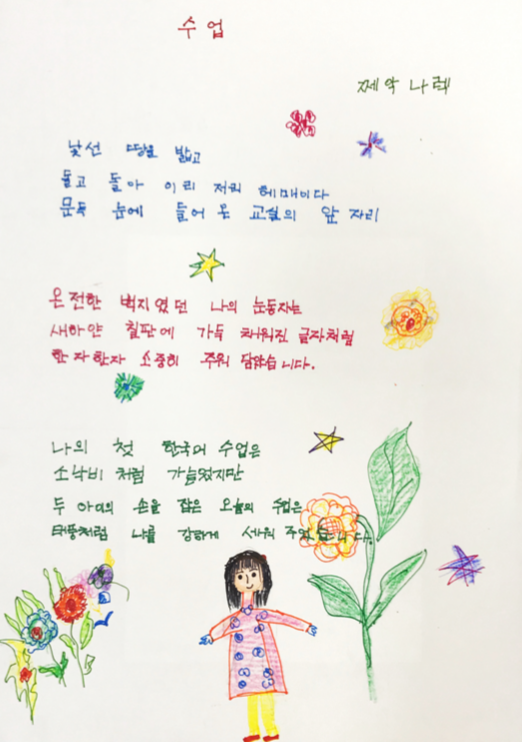 수업
쩨악 나렉
낯선 땅을 밟고
돌고 돌아 이리 저리 헤매이다
문득 눈에 들어 온 교실의 앞 자리
온전한 백지였던 나의 눈동자는
새하얀 칠판에 가득 채워진 글자처럼
한 자 한자 소중히 주워 담았습니다.
나의 첫 한국어 수업은
소낙비 처럼 가늘었지만
두 아이의 손을 잡은 오늘의 수업은
태풍처럼 나를 강하게 세워 주었습니다.